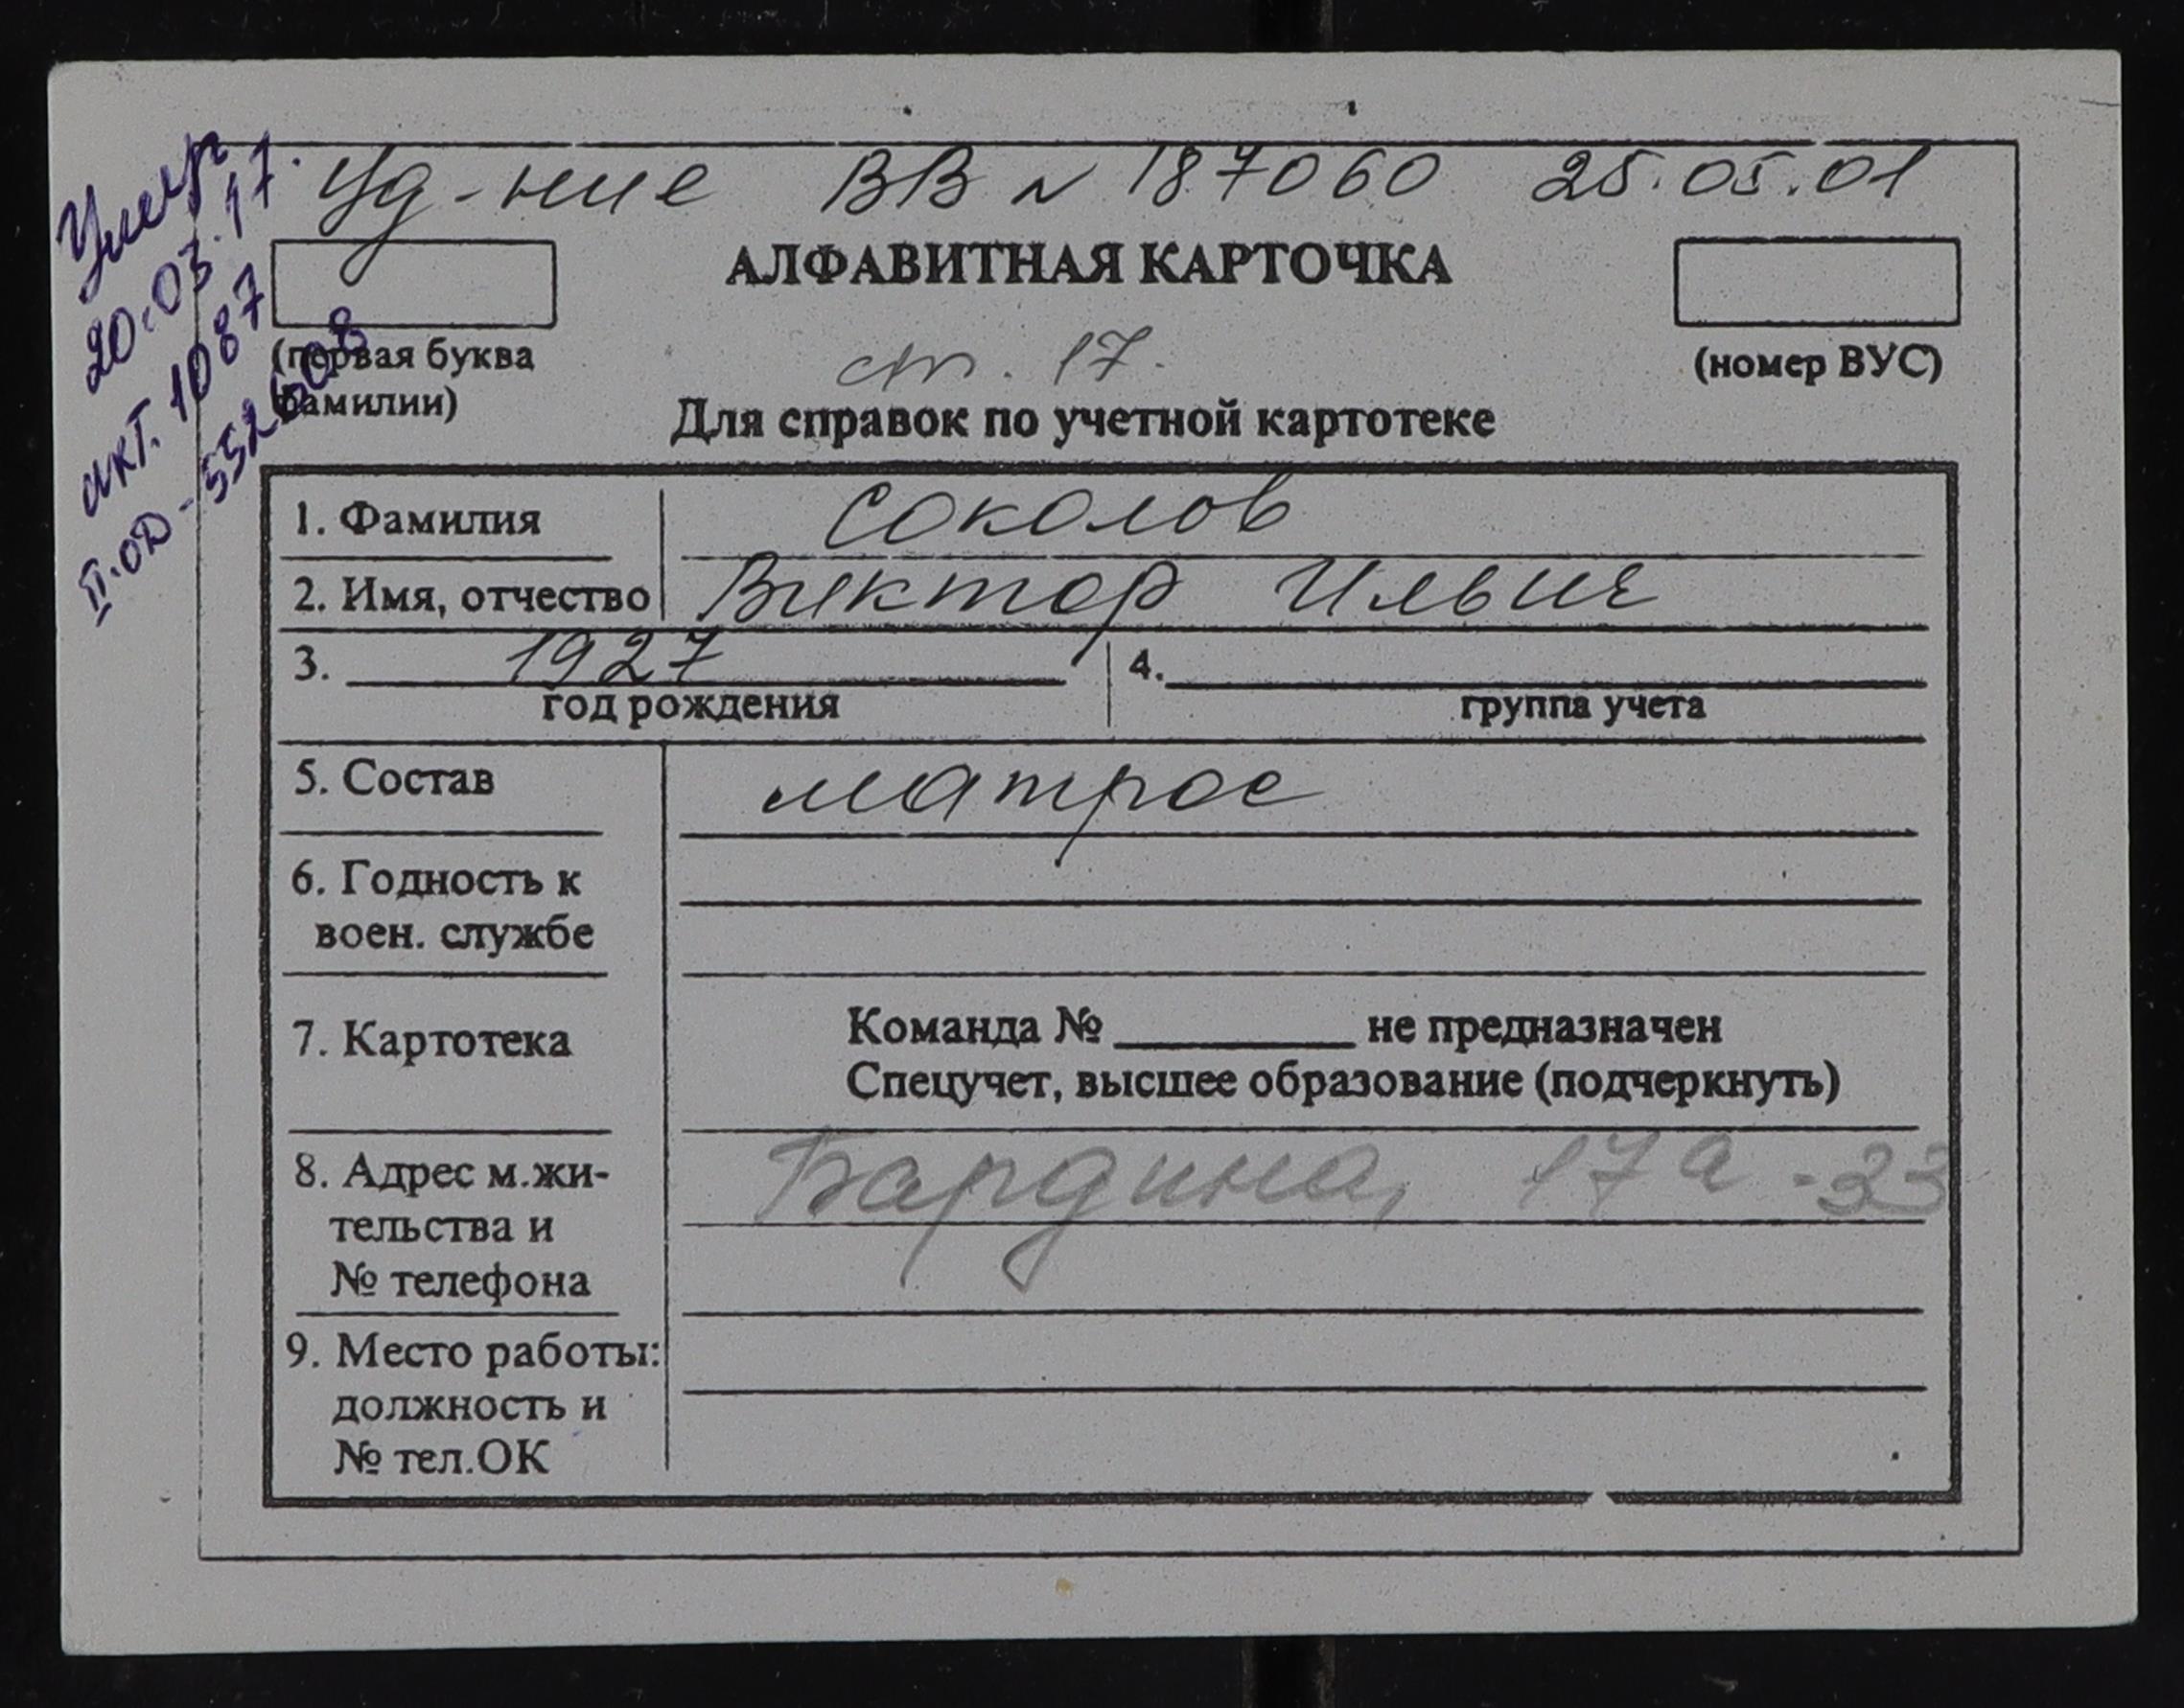 Умер
20.03.17.
акт. 1087
II-ОД-552608
Уд-ние ВВ N 187060 25.05.01
АЛФАВИТНАЯ КАРТОЧКА
(первая буква
фамилии)
(номер ВУС)
ст. 17.
Для справок по учетной картотеке
1. Фамилия Соколов
2. Имя, отчество Виктор Ильич
3. 1927 4.
год рождения группа учета
5. Состав матрос
6. Годность к
воен. службе
7. Картотека Команда № ______ не предназначен
Спецучет, высшее образование (подчеркнуть)
8. Адрес м.жи- Бардина, 17а-33
тельства и
№ телефона
9. Место работы:
должность и
№ тел.ОК